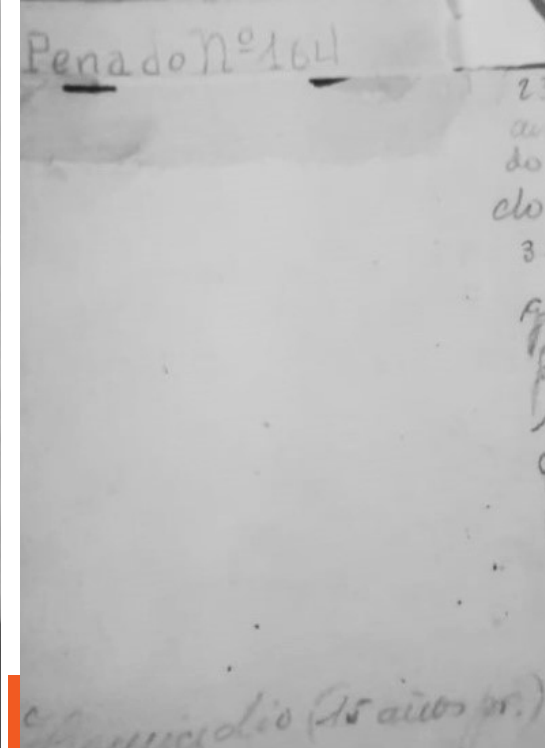 Penado nº 164
do
do
3
Homicidio (15 años pr.)